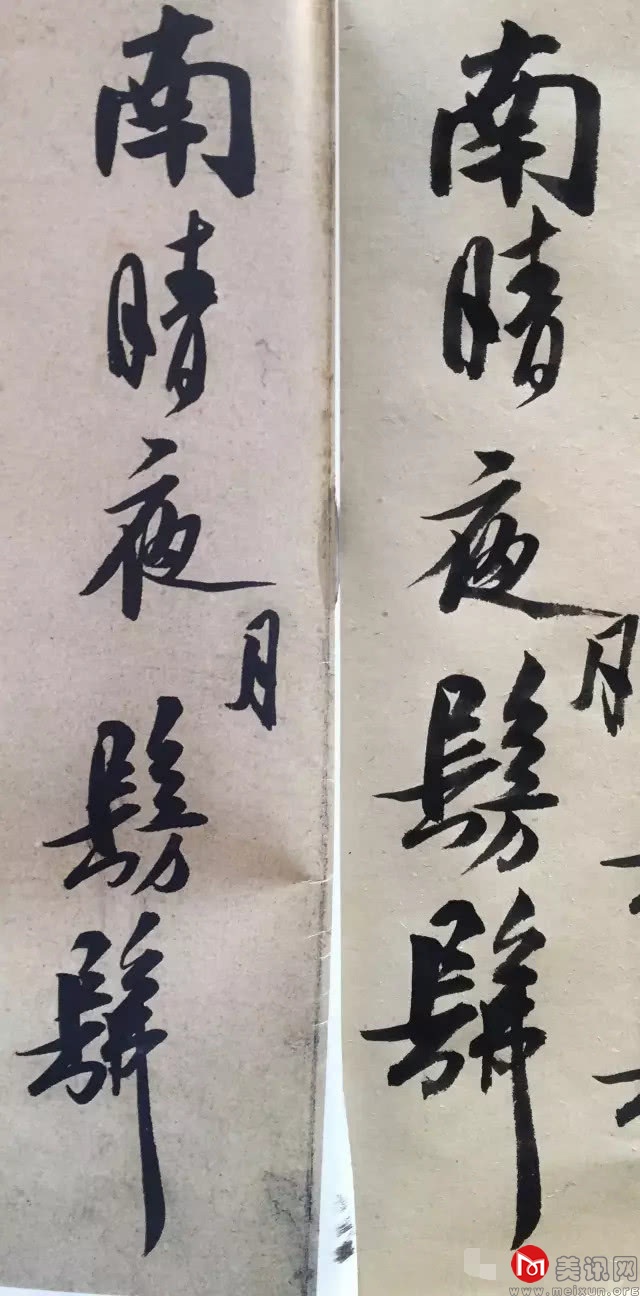 南晴夜月髣髴
南晴夜月髣髴
美讯网
www.meixun.org